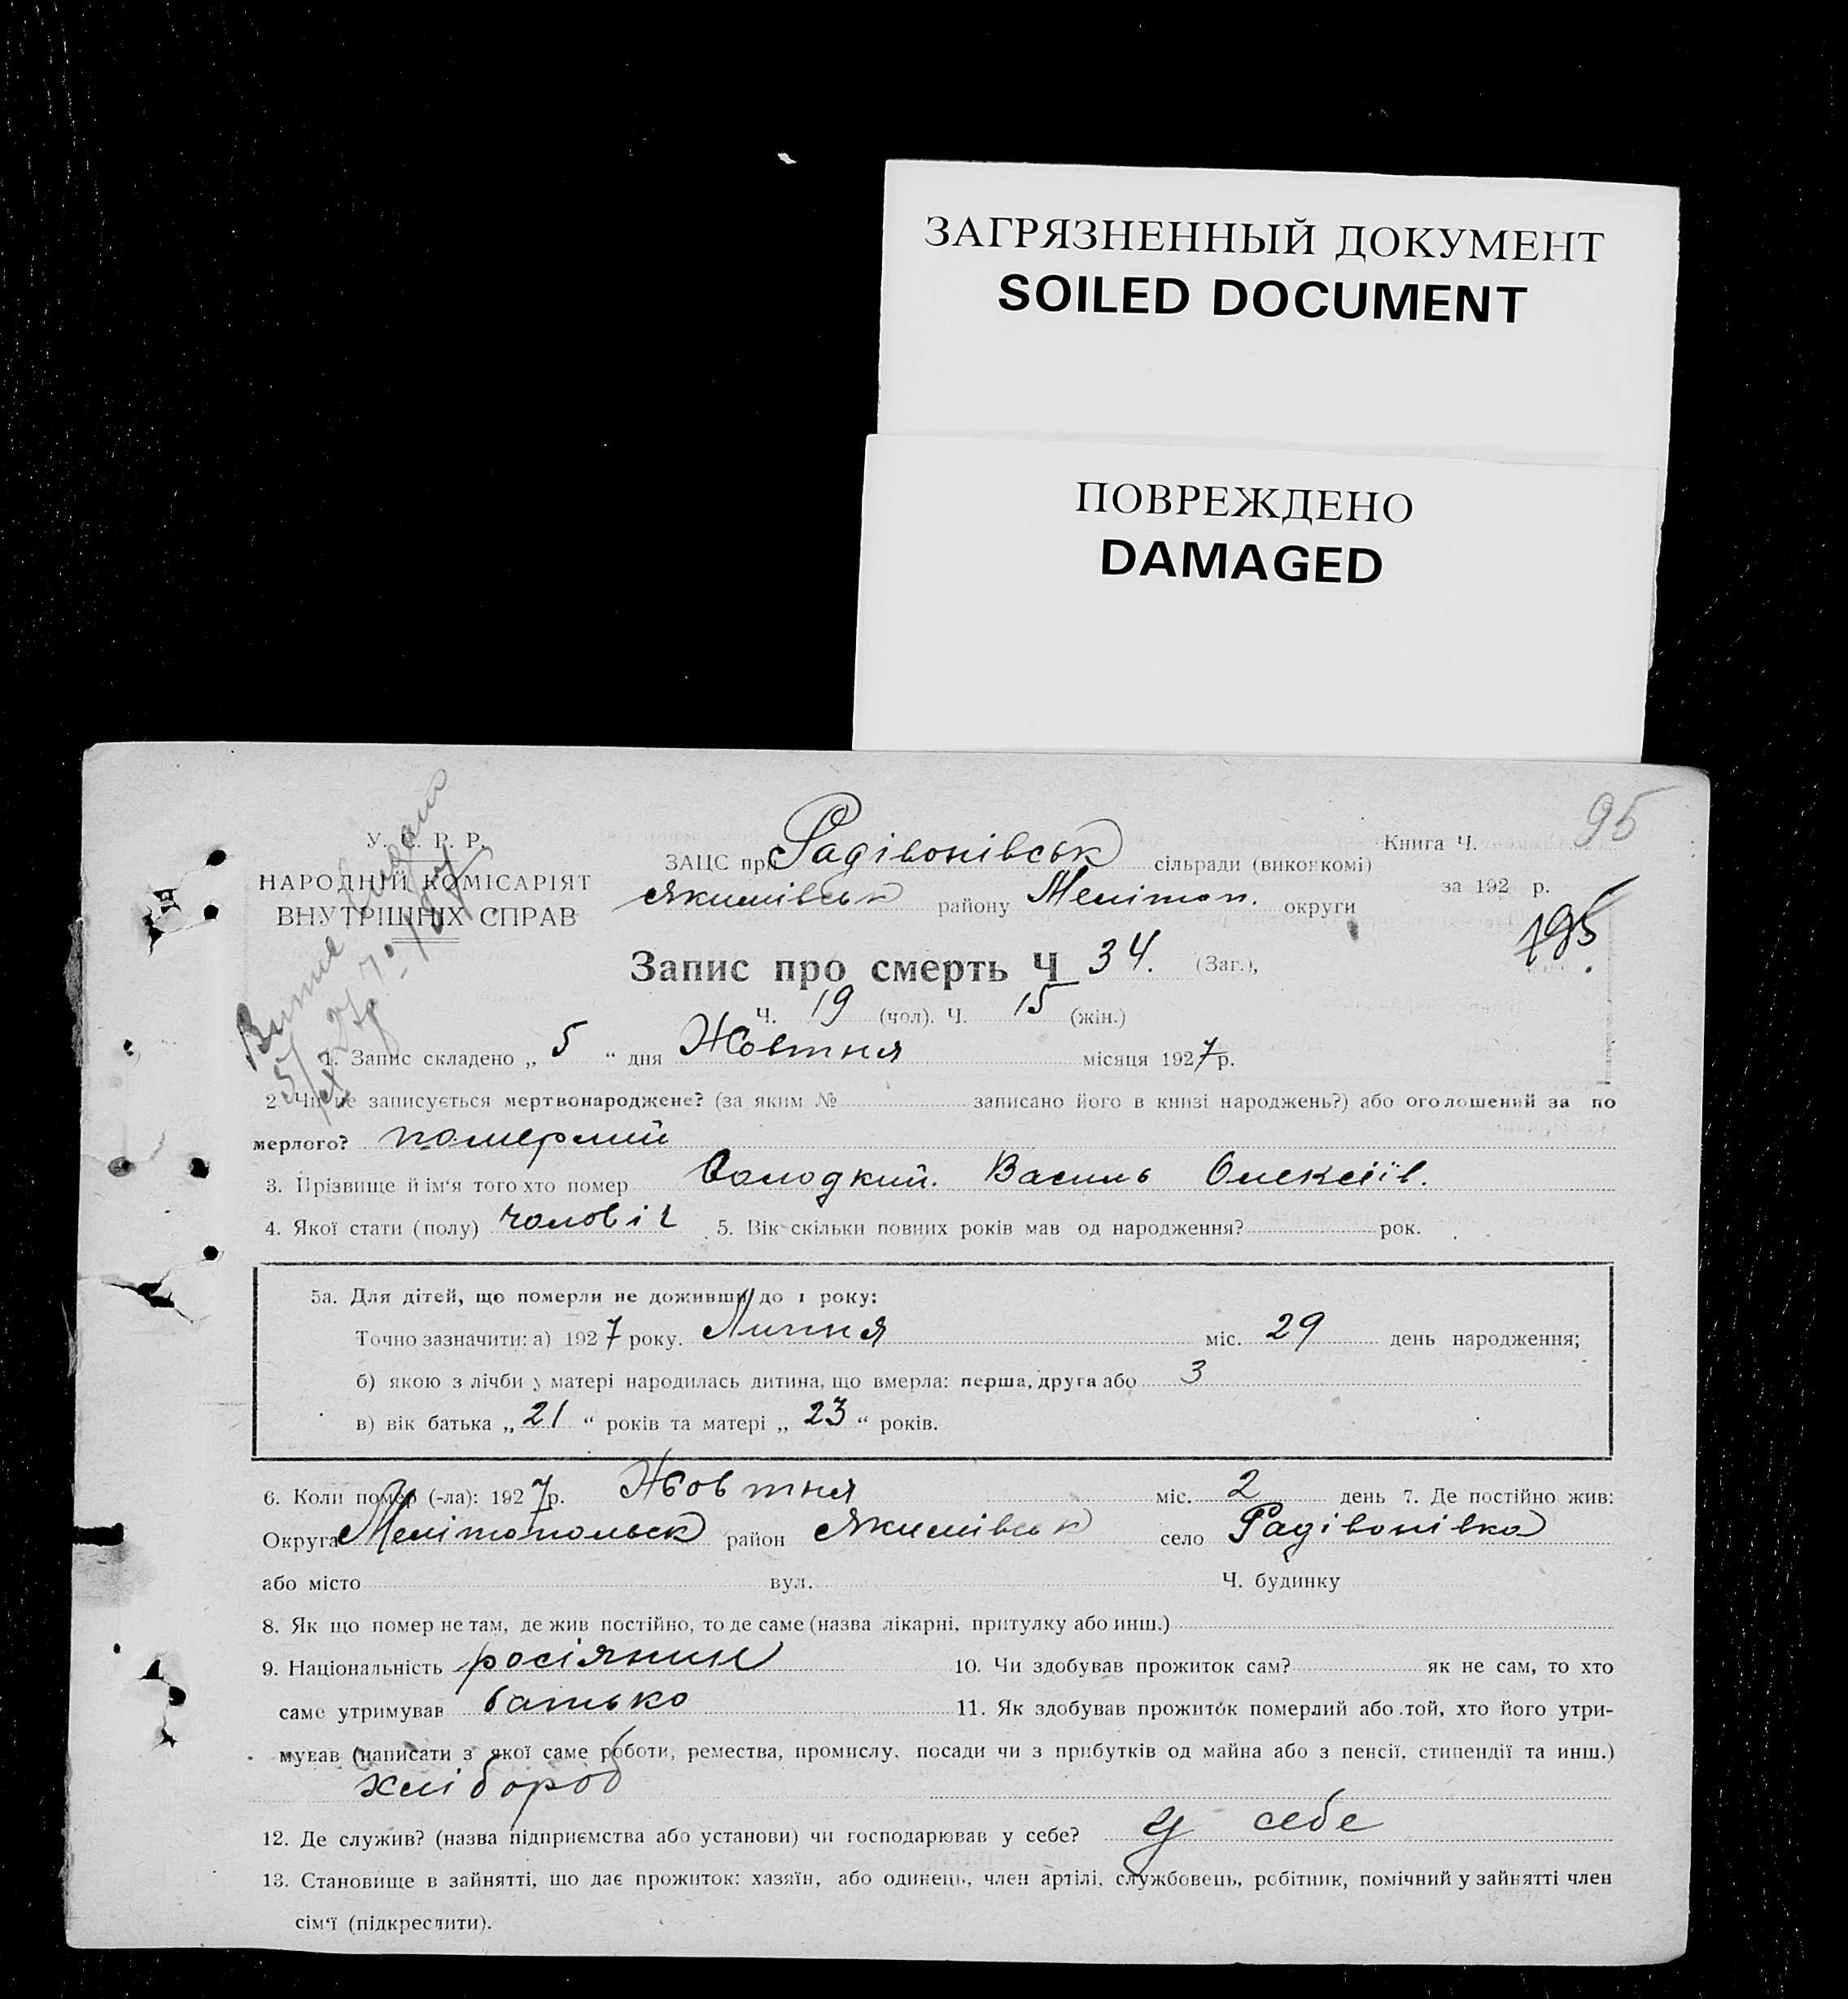 ЗАГРЯЗНЕННЫЙ ДОКУМЕНТ
SOILED DOCUMENT
ПОВРЕЖДЕНО
DAMAGED
95
У. С. Р. Р.
НАРОДНІЙ КОМІСАРІЯТ
ВНУТРІШНІХ СПРАВ
ЗАЦС при Радівонівськ сільради (виконкомі)
Якимівськ району Мелітоп. округи
Книга Ч.
за 192 р.
195
Запис про смерть Ч 34. (Заг.),
Ч. 19 (чол). Ч. 15 (жін.)
1. Запис складено „ 5 “ дня Жовтня місяця 1927 р.
2 Чи не записується мертвонароджене? (за яким № записано його в книзі народжень?) або оголошений за по
мерлого? померлий
3. Прізвище й ім'я того хто помер Солодкий. Василь Олексіїв.
4. Якої стати (полу) чоловіч 5. Вік скільки повних років мав од народження? рок.
5а. Для дітей, що померли не доживши до 1 року:
Точно зазначити: а) 1927 року. Липня міс. 29 день народження;
б) якою з лічби у матері народилась дитина, що вмерла: перша, друга або 3
в) вік батька „ 21 “ років та матері „ 23 “ років.
6. Коли помер (-ла): 1927 р. Жовтня міс. 2 день 7. Де постійно жив:
Округа Мелітопольськ район Якимівськ село Радівонівка
або місто вул. Ч. будинку
8. Як що помер не там, де жив постійно, то де саме (назва лікарні, притулку або инш.)
9. Національність росіянин 10. Чи здобував прожиток сам? як не сам, то хто
саме утримував батько 11. Як здобував прожиток померлий або той, хто його утри-
мував (написати з якої саме роботи, ремества, промислу, посади чи з прибутків од майна або з пенсії, стипендії та инш.)
хлібороб
12. Де служив? (назва підприємства або установи) чи господарював у себе? у себе
13. Становище в зайнятті, що дає прожиток: хазяїн, або одинець, член артілі, службовець, робітник, помічний у зайнятті член
сім'ї (підкреслити).